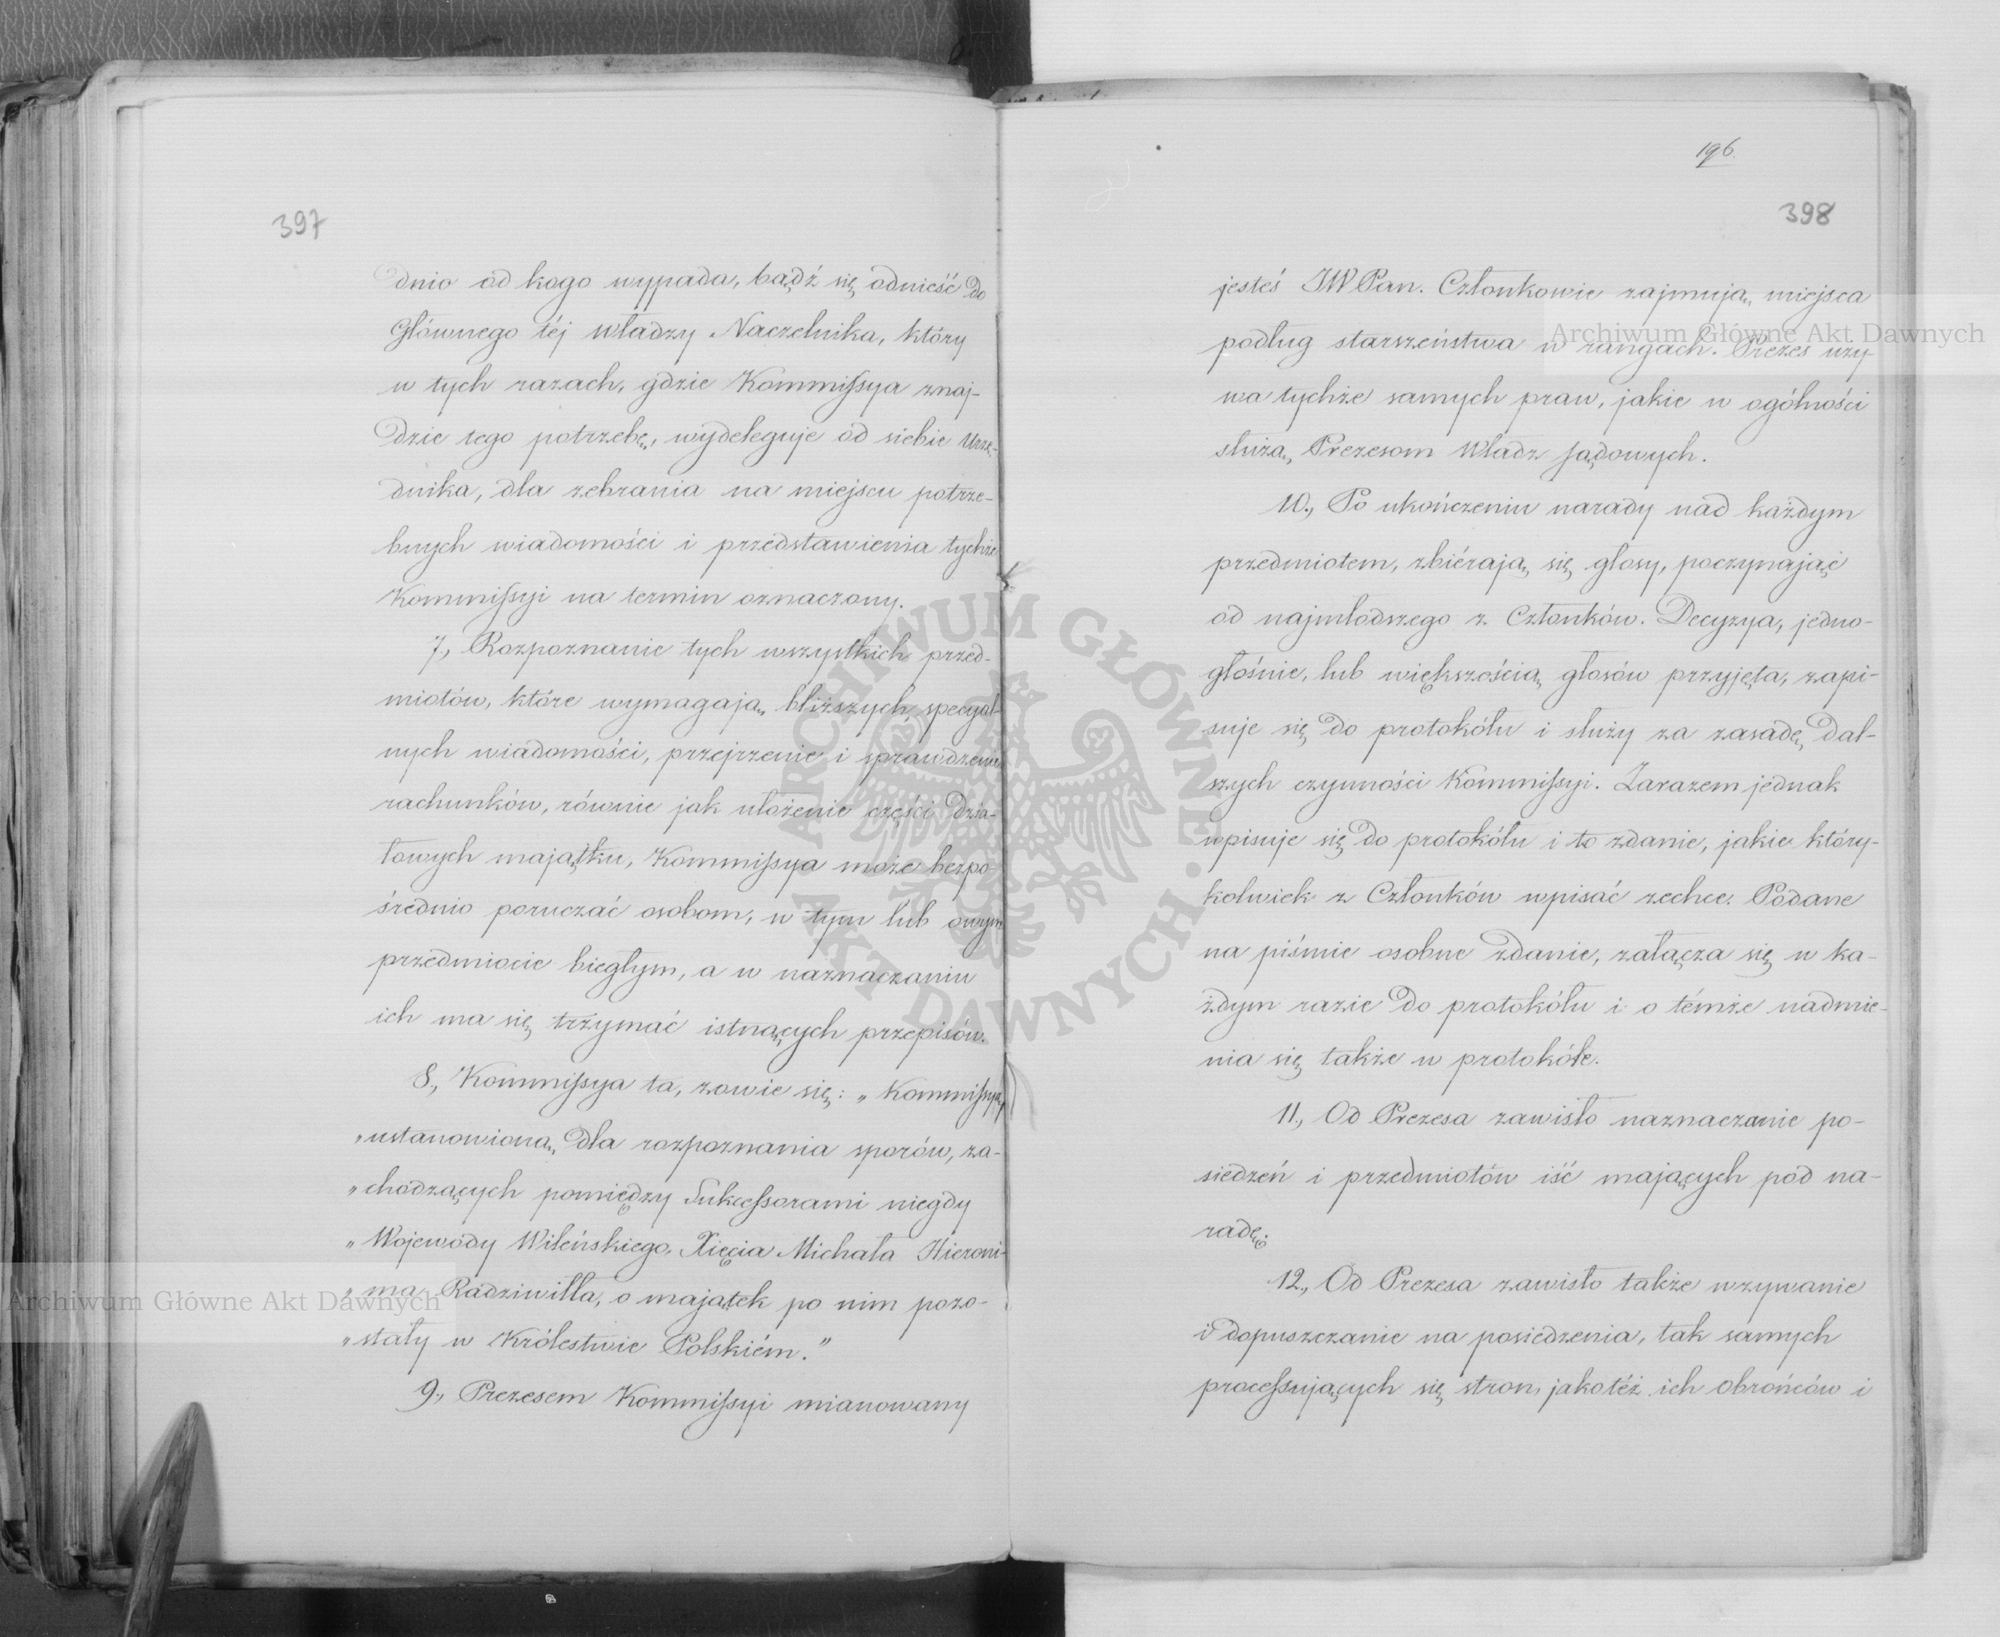 397
dnio od kogo wypada, bądź się odnieść do
Głównego téj władzy Naczelnika, który
w tych razach, gdzie Kommissya znaj-
dzie tego potrzebę, wydeleguje od siebie Urzę-
dnika, dla zebrania na miejscu potrze-
bnych wiadomości i przedstawienia tychże
Kommissyi na termin oznaczony.
7., Rozpoznanie tych wszystkich przed-
miotów, które wymagają bliższych, specyal-
nych wiadomości, przejrzenie i sprawdzenie
rachunków, równie jak ułożenie części dzia-
łowych majątku, Kommissya może bezpo-
średnio poruczać osobom, w tym lub owym
przedmiocie biegłym, a w naznaczaniu
ich ma się trzymać istnących przepisów.
8., Kommissya ta, zowie się: „Kommissyą
„ustanowioną dla rozpoznania sporów, za-
„chodzących pomiędzy Sukcessorami niegdy
„Wojewody Wileńskiego, Xięcia Michała Hieroni-
„ma Radziwiłła, o majątek po nim pozo-
„stały w Królestwie Polskiém.”
9., Prezesem Kommissyi mianowany
196
398
jesteś JWPan. Członkowie zajmują miejsca
podług starszeństwa w rangach. Prezes uży-
wa tychże samych praw, jakie w ogólności
służą Prezesom Władz sądowych.
10., Po ukończeniu narady nad każdym
przedmiotem, zbiérają się głosy, poczynając
od najmłodszego z Członków. Decyzya, jedno-
głośnie, lub większością głosów przyjęta, zapi-
suje się do protokółu i służy za zasadę dal-
szych czynności Kommissyi. Zarazem jednak
wpisuje się do protokółu i to zdanie, jakie który-
kolwiek z Członków wpisać zechce. Podane
na piśmie osobne zdanie, załącza się w ka-
żdym razie do protokółu i o témże nadmie-
nia się także w protokóle.
11., Od Prezesa zawisło naznaczanie po-
siedzeń i przedmiotów iść mających pod na-
radę.
12., Od Prezesa zawisło także wzywanie
i dopuszczanie na posiedzenia, tak samych
processujących się stron, jakotéż ich obrońców i
Archiwum Główne Akt Dawnych
Archiwum Główne Akt Dawnych
ARCHIWUM GŁÓWNE AKT DAWNYCH